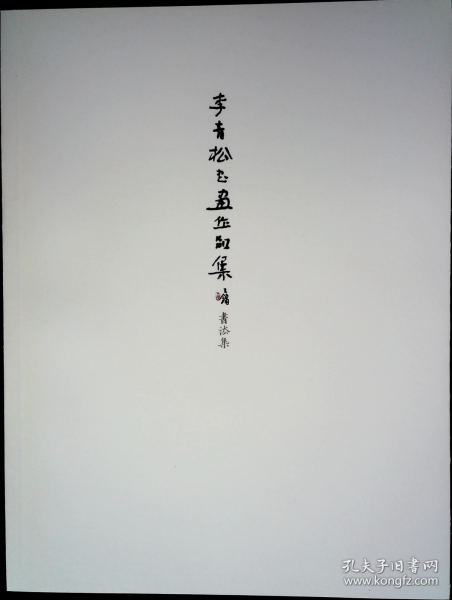 李青松书画作品集
書法集
孔夫子旧書网
www.kongfz.com